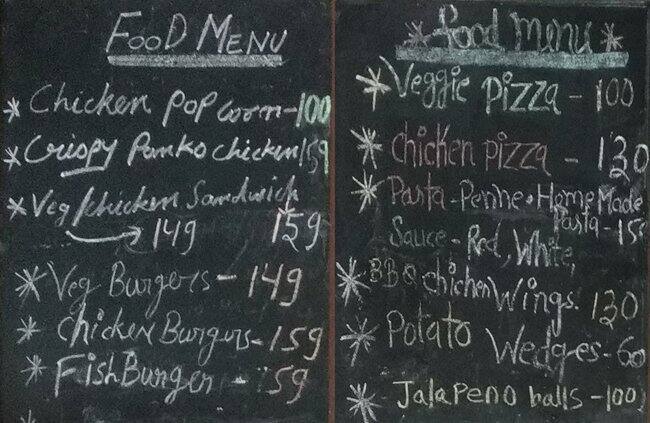 Food Menu
* Chicken Pop corn - 100
* Crispy Panko chicken 159
* Veg / chicken Sandwich
→ 149 159
* Veg Burgers - 149
* Chicken Burgurs - 159
* Fish Burger - 59
* Food menu *
* Veggie Pizza - 100
* chicken pizza - 130
* Pasta - Penne • Home Made
Pasta - 15
Sauce - Red, White,
* BBQ chicken Wings. 130
* Potato
Wedges - 60
* Jalapeno balls - 100